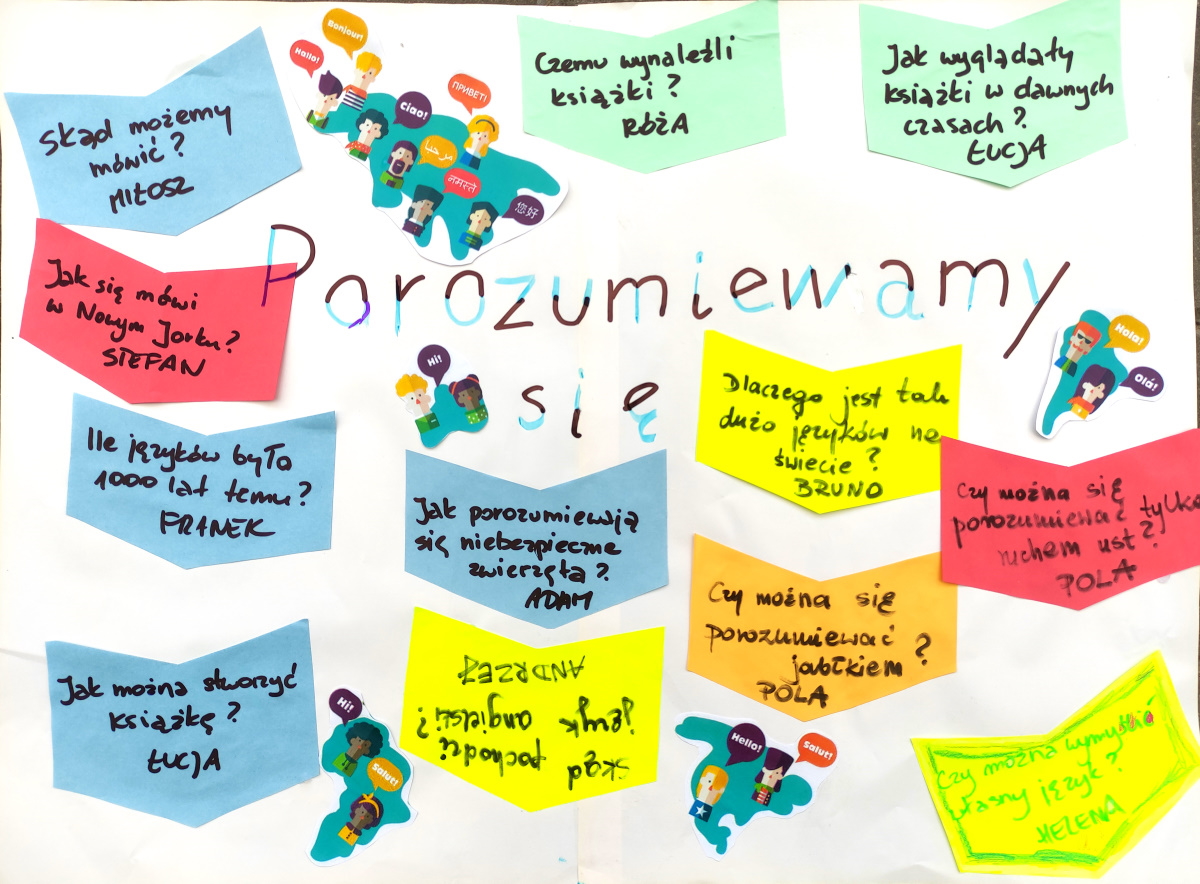 Skąd możemy
mówić?
MIŁOSZ
Bonjour!
Hallo!
Ciao!
ПРИВЕТ!
مرحبا
नमस्ते
您好
Czemu wynaleźli
książki?
RÓŻA
Jak wyglądały
książki w dawnych
czasach?
ŁUCJA
Porozumiewamy
się
Jak się mówi
w Nowym Jorku?
STEFAN
Hi!
Hola!
Olá!
Dlaczego jest tak
dużo języków na
świecie?
BRUNO
Ile języków było
1000 lat temu?
FRANEK
Jak porozumiewają
się niebezpieczne
zwierzęta?
ADAM
Czy można się
porozumiewać tylko
ruchem ust?
POLA
Czy można się
porozumiewać
jabłkiem?
POLA
Jak można stworzyć
książkę?
ŁUCJA
Hi!
Salut!
skąd pochodzi
język angielski?
ANDRZEJ
Hello!
Salut!
Czy można wymyślić
własny język?
HELENA